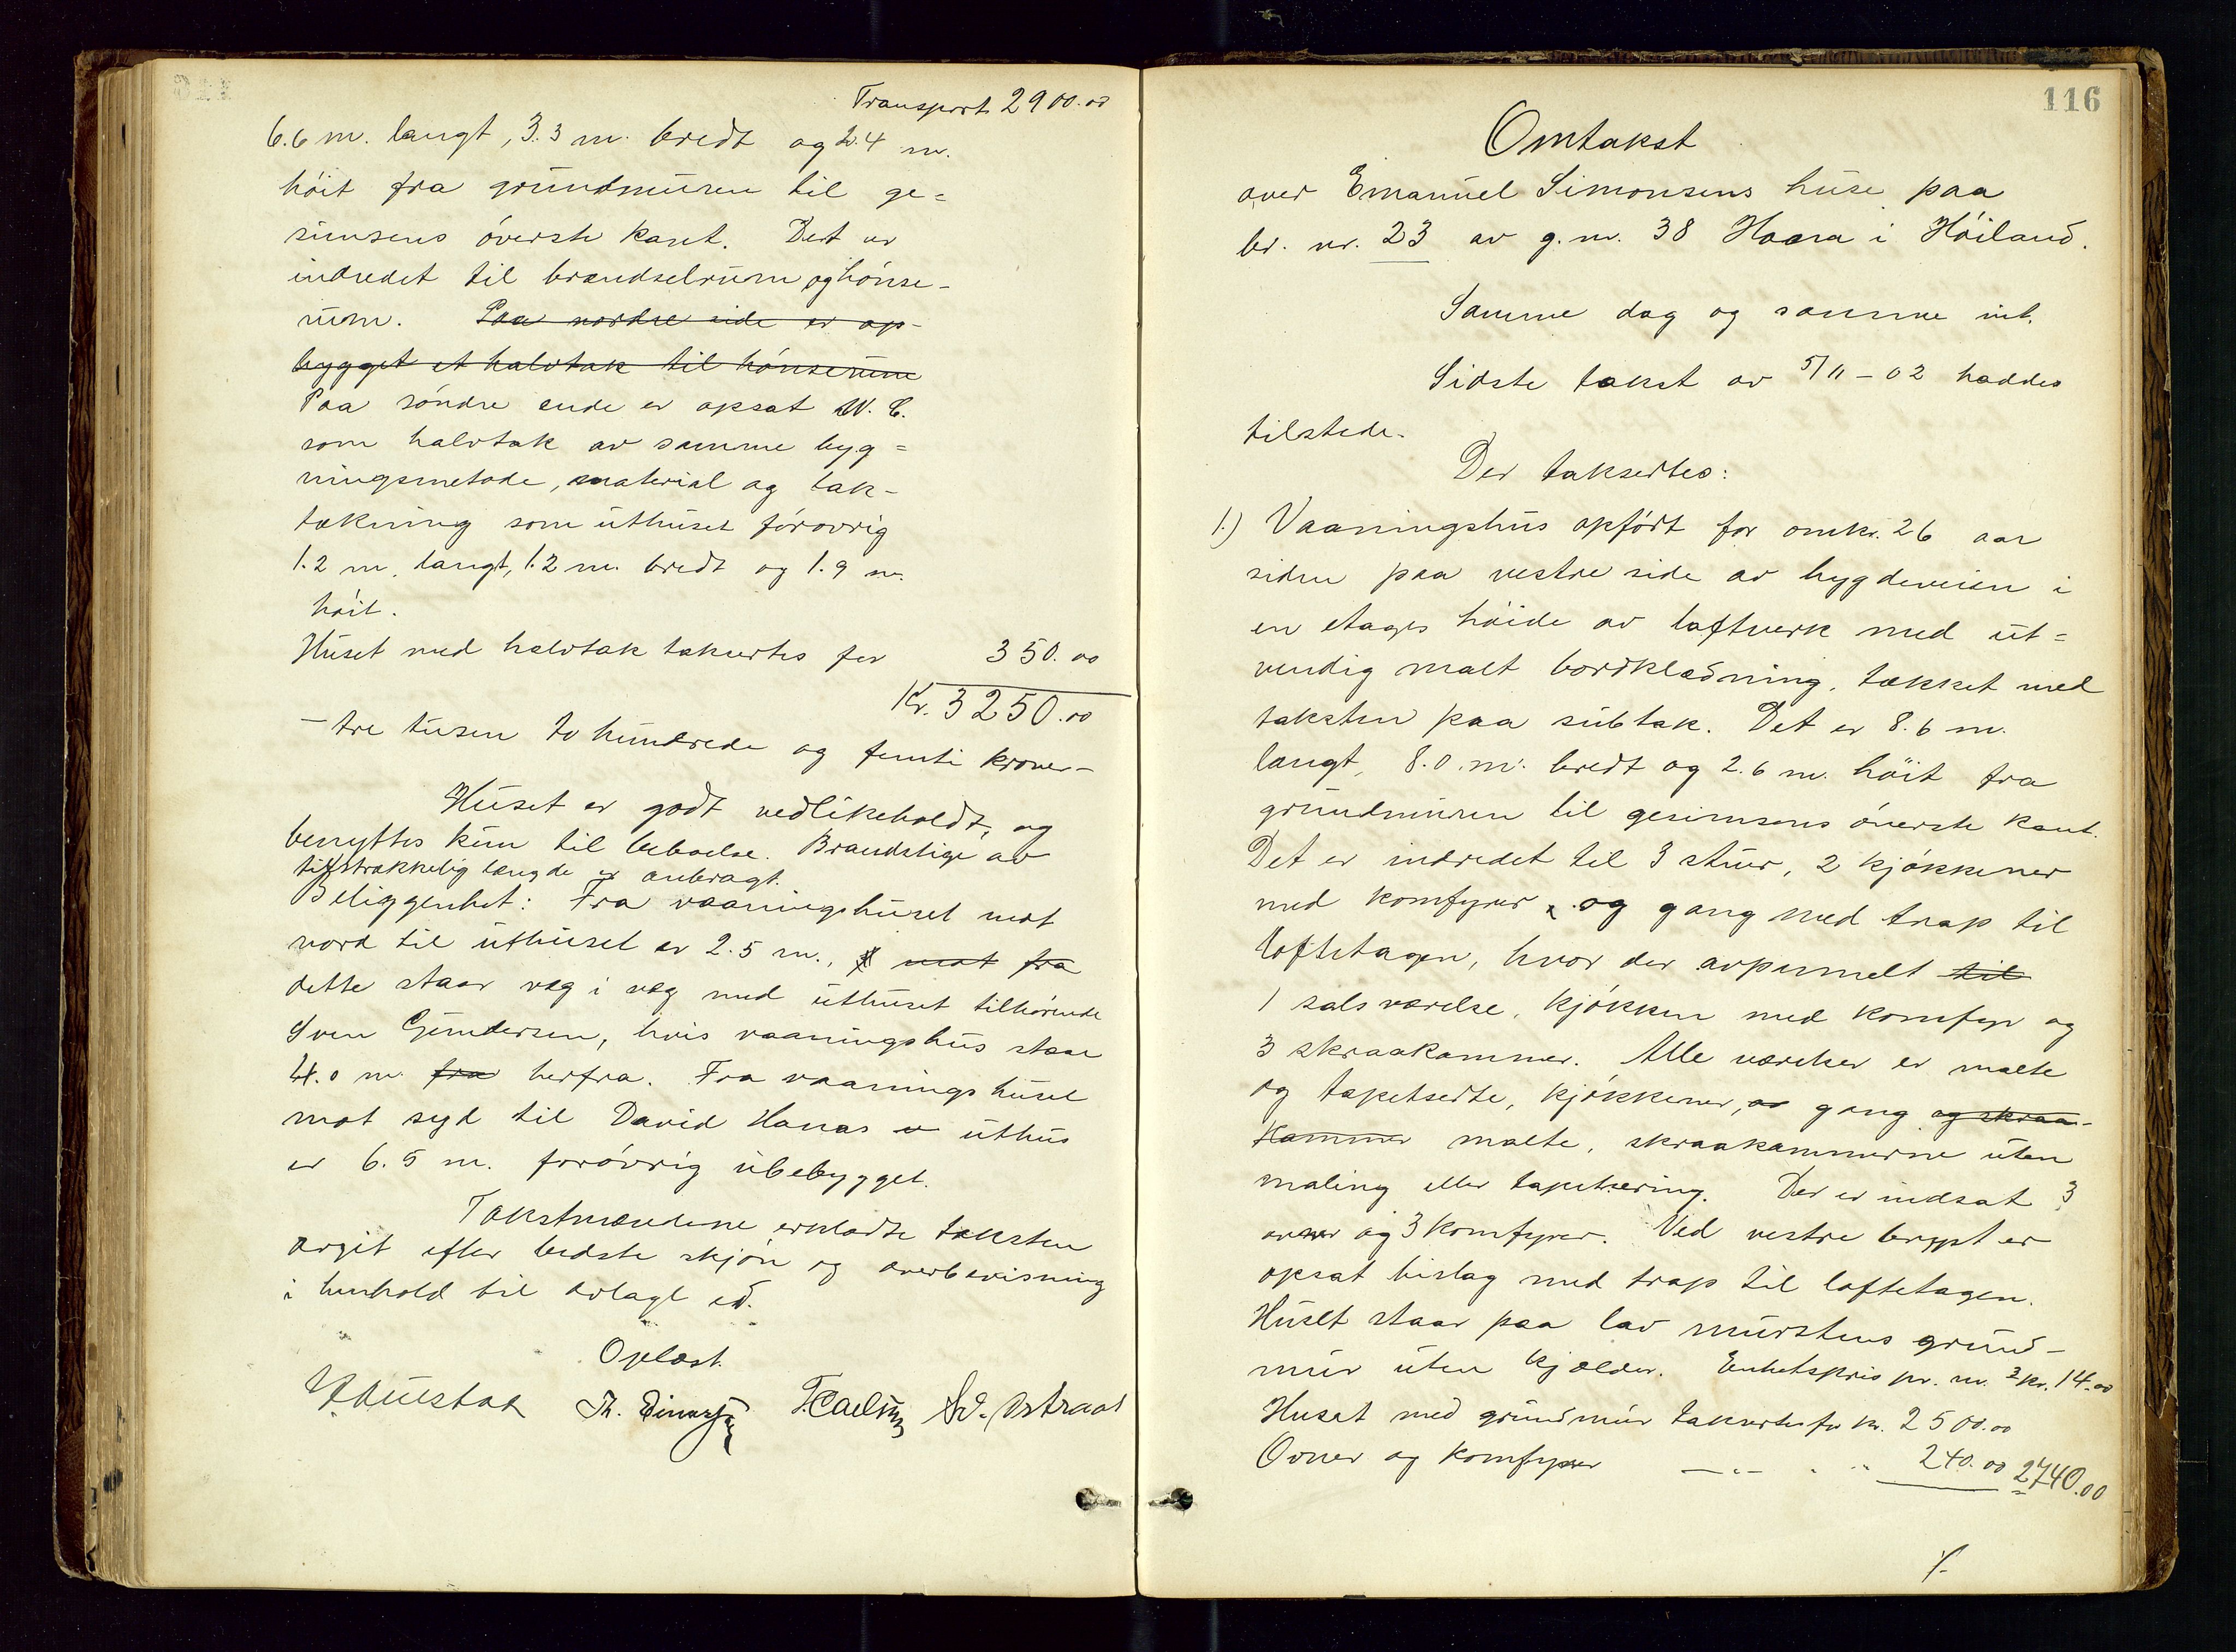 Transport 2900.00
6.6 m. langt, 3.3 m. bredt og 2.4 m.
höit fra grundmuren til ge=
simsens överste kant. Det er
indredet til brændselrum og hönse-
rum. Paa nordre side er op-
bygget et halvtak til hönserum
Paa söndre ende er opsat W.C.
som halvtak av samme byg=
ningsmetode, material og tak-
tækning som uthuset förovrig
1.2 m. langt, 1.2 m. bredt og 1.9 m.
höit.
Huset med halvtak taksertes for 350.00
Kr. 3250.00
- tre tusen to hundrede og femti kroner-
Huset er godt vedlikeholdt, og
benyttes kun til beboelse. Brandstige av
tilstrækkelig længde er anbragt.
Beliggenhet: Fra vaaningshuset mot
nord til uthuset er 2.5 m., mot fra
dette staar væg i væg med uthuset tilhörende
Sven Gundersen, hvis vaaningshus staar
4.0 m. fra herfra. Fra vaaningshuset
mot syd til David Hanas uthus
er 6.5 m. forövrig ubebygget.
Takstmændene erklærte taksten
avgit efter bedste skjön og overbevisning
i henhold til avlagt ed.
Oplæst.
Th. Einarsen
116
Omtakst
over Emanuel Simonsens huse paa
br. nr. 23 av g. nr. 38 Haana i Höiland.
Samme dag og samme ret.
Sidste takst av 5/11-02 haddes
tilstede.
Der taksertes:
1.) Vaaningshus opfört for omkr. 26 aar
siden paa vestre side av bygdeveien i
en etages höide av laftverk med ut=
vendig malt bordklædning, tækket med
taksten paa subtak. Det er 8.6 m.
langt, 8.0 m. bredt og 2.6 m. höit fra
grundmuren til gesimsens överste kant.
Det er indredet til 3 stuer, 2 kjökkener
med komfyrer, og gang med trap til
loftetagen, hvor der avpanelt til
1 salsværelse, kjökken med komfyr og
3 skraakammer. Alle værelser er malte
og tapetserte, kjökkener, gang og skraa-
kammer malte, skraakammerne uten
maling eller tapetsering. Der er indsat 3
ovner og 3 komfyrer. Ved vestre brypt er
opsat bislag med trap til loftetagen.
Huset staar paa lav murstens grund-
mur uten kjælder. Enhetspris pr. m.² kr. 14.00
Huset med grundmur taksertes for kr. 2500.00
Ovner og komfyrer — " — 240.00 2740.00